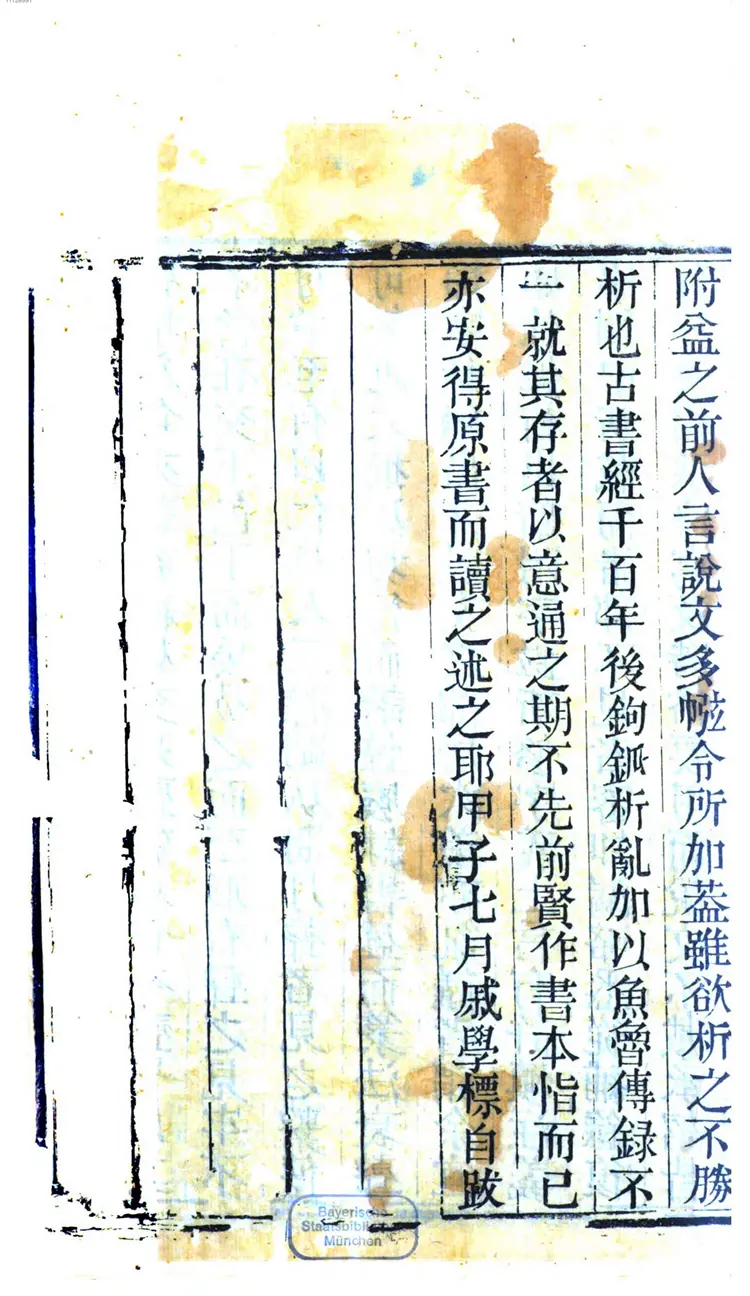 附益之前人言說文多令所加葢雖欲析之不勝
析也古書經千百年後鉤鈲析亂加以魚魯傳録不
一就其存者以意通之期不先前賢作書本恉而已
亦安得原書而讀之述之耶甲子七月戚學標自跋
Bayerische
Staatsbibliothek
München